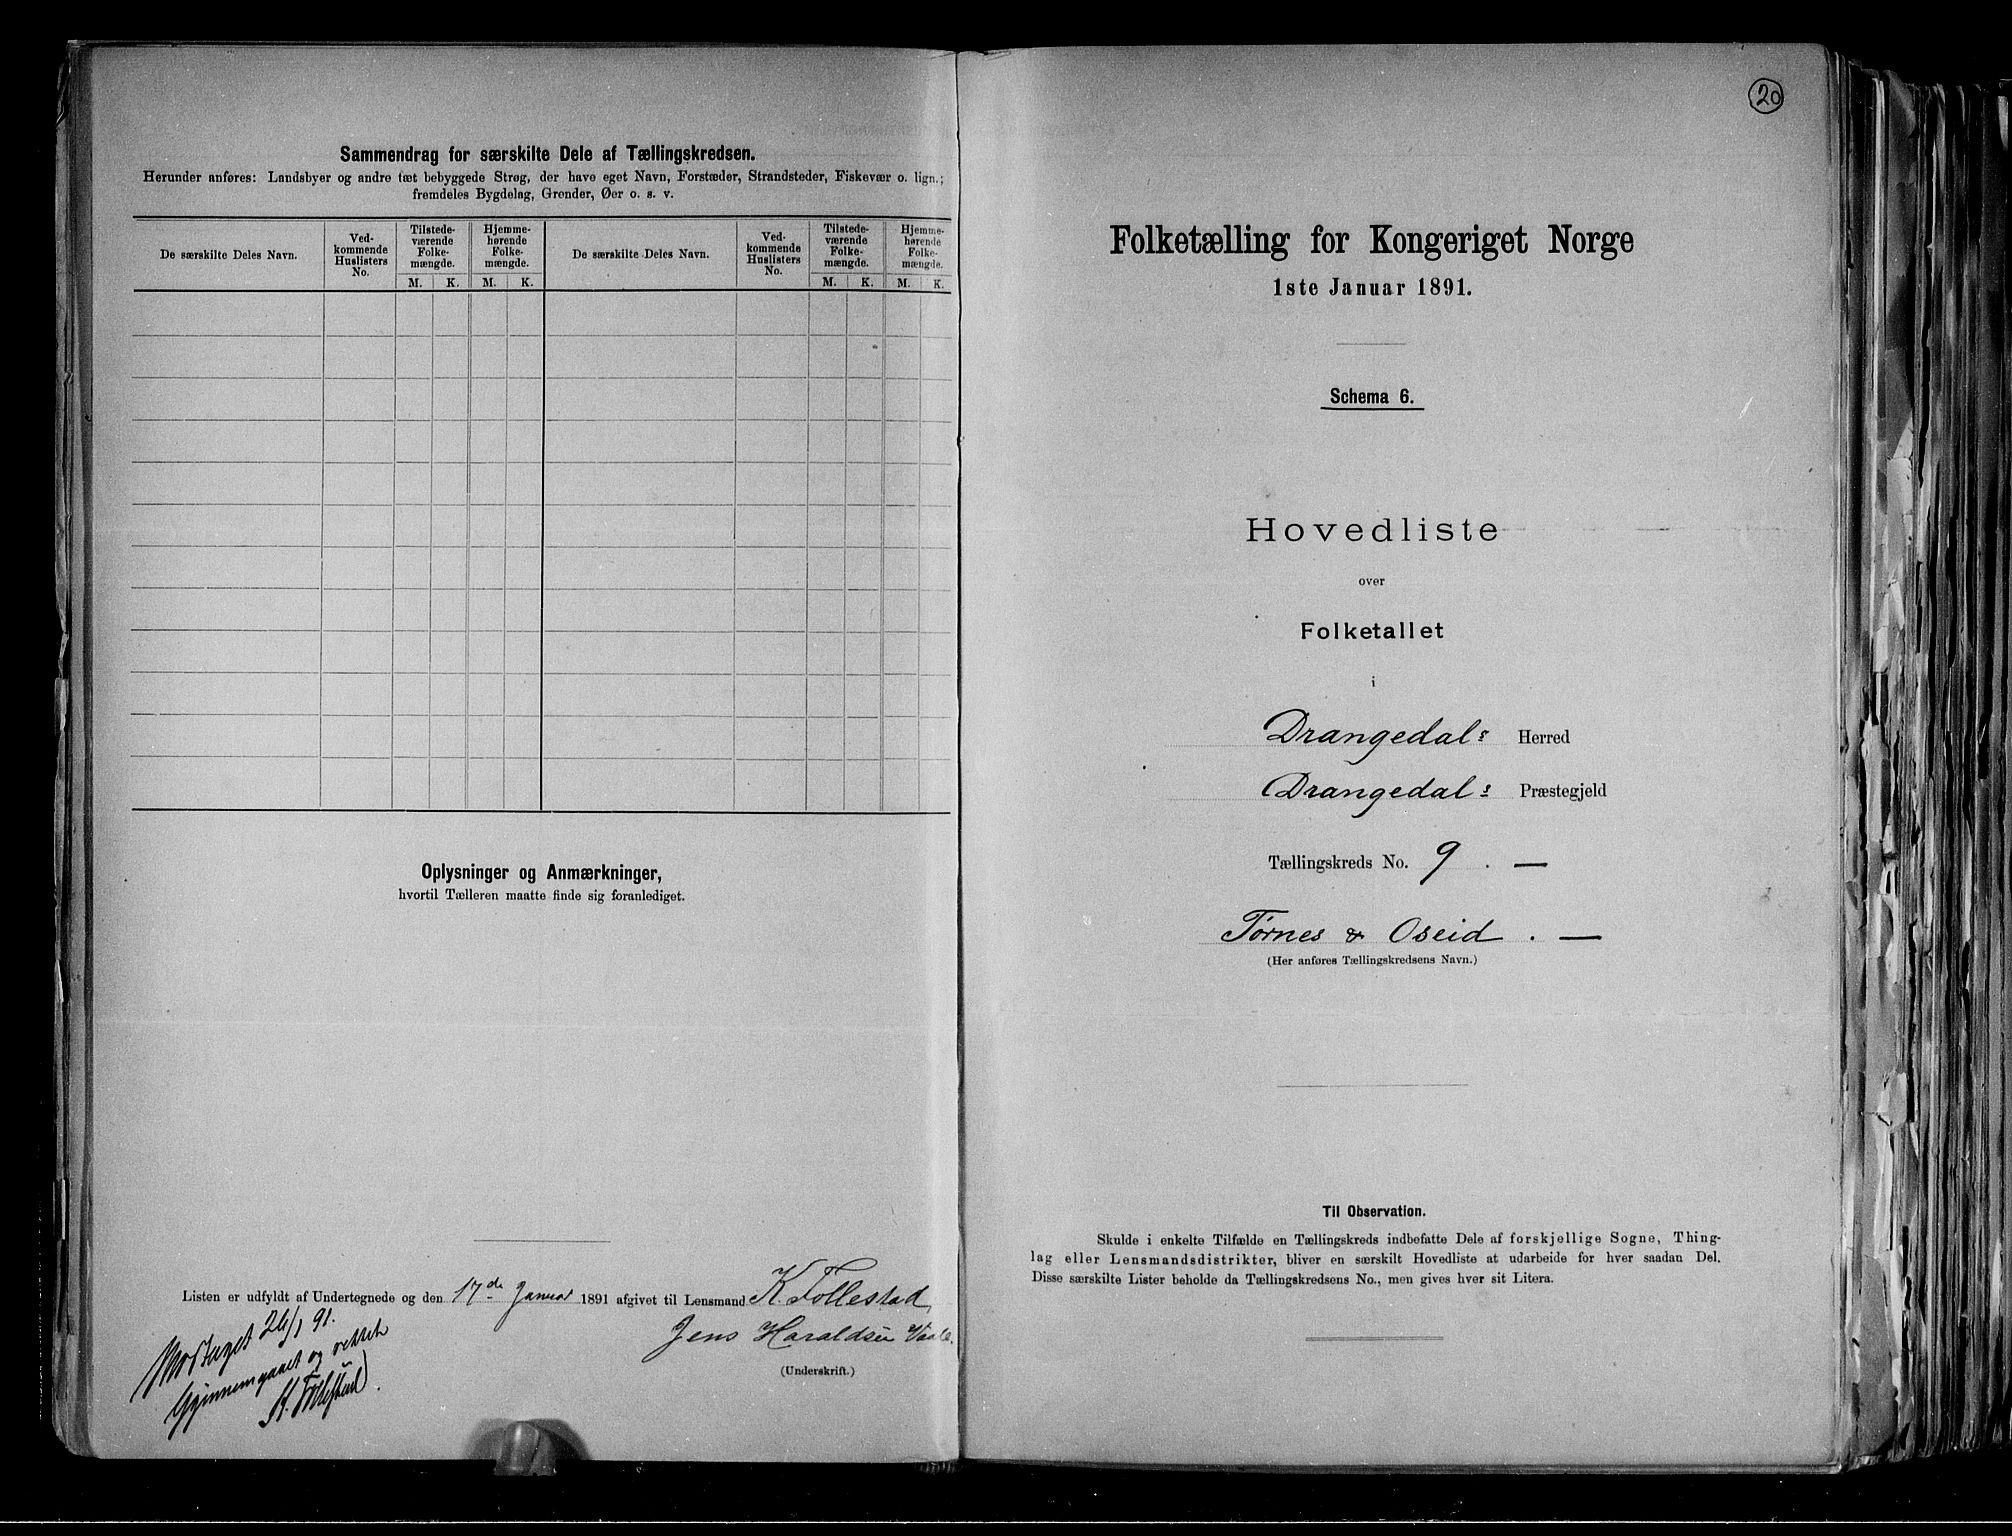 Sammendrag for særskilte Dele af Tællingskredsen.
Herunder anføres: Landsbyer og andre tæt bebyggede Strøg, der have eget Navn, Forstæder, Strandsteder, Fiskevær o. lign.;
fremdeles Bygdelag, Grender, Øer o. s. v.
De særskilte Deles Navn.
Ved-
kommende
Huslisters
No.
Tilstede-
værende
Folke-
mængde.
Hjemme-
hørende
Folke-
mængde.
De særskilte Deles Navn.
Ved-
kommende
Huslisters
No.
Tilstede-
værende
Folke-
mængde.
Hjemme-
hørende
Folke-
mængde.
M. K. M. K. M. K. M. K.
Oplysninger og Anmærkninger,
hvortil Tælleren maatte finde sig foranlediget.
Listen er udfyldt af Undertegnede og den 17de Januar 1891 afgivet til Lensmand K. Follestad,
Jens Haraldsen
(Underskrift.)
Modtaget 26/1 91.
Gjennemgaaet og rettet
K. Follestad.
20
Folketælling for Kongeriget Norge
1ste Januar 1891.
Schema 6.
Hovedliste
over
Folketallet
i
Drangedals Herred
Drangedals Præstegjeld
Tællingskreds No. 9. —
Tørnes & Oseid. —
(Her anføres Tællingskredsens Navn.)
Til Observation.
Skulde i enkelte Tilfælde en Tællingskreds indbefatte Dele af forskjellige Sogne, Thing-
lag eller Lensmandsdistrikter, bliver en særskilt Hovedliste at udarbeide for hver saadan Del.
Disse særskilte Lister beholde da Tællingskredsens No., men gives hver sit Litera.